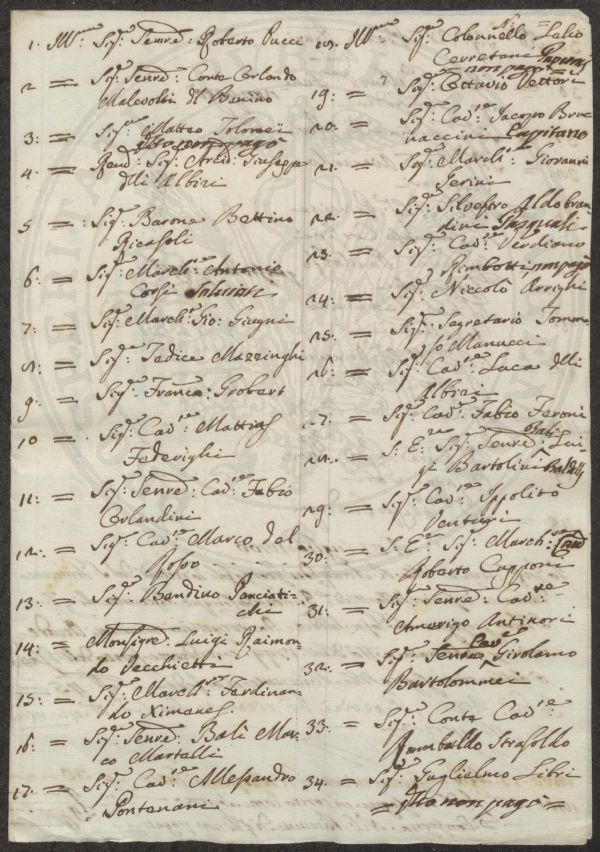 1. Ill.mo Sig.r Senre: Roberto Pucci
2 = Sig.r Senre: Conte Orlando
Malevolti del Benino
3: = Sig.r Matteo Tolomei
Dto non pagò
4: = Rend: Sig.r Arcid: Giuseppe
dlli Albizi
5 = Sig.r Barone Bettino
Ricasoli
6: = Sig.r March: Antonio
Corsi Salviati
7: = Sig.r March: Gio: Giugni
8: = Sig.r Jadice Mazzinghi
9 = Sig.r Franco: Grobert
10 = Sig.r Cav.re Mattias
Federighi
11: = Sig.r Senre: Cav.re Fabio
Orlandini
12: = Sig.r Cav.re Marco del
Roso
13: = Sig.r Bandino Panciati-
chi
14: = Monsigre: Luigi Raimon-
do Vecchietti
15: = Sig.r March: Ferdinan-
do Ximenes.
16: = Sig.r Senre: Balì Mar-
co Martelli
17: = Sig.r Cav.re Allesandro
Pontanani
18. Ill.mo Sig.r Colonnello Lelio
Cerretani
non pagò
19: = Sig.r Ottavio Vettori
20: = Sig.r Cav.re Jacopo Bru-
naccini Capitano
21: = Sig.r March: Giovanni
Gerini
22: = Sig.r Silvestro Aldobran-
dini Pasquali
23: = Sig.r Cav.re Verdiano
Rimbotti non pagò
24: = Sig.r Niccolò Arrighi
25: = Sig.r Segretario Tomma-
so Manucci
26: = Sig.r Cav.re Luca dlli
Albizi
27: = Sig.r Cav.re Fabio Feroni
28: = S. E. Sig.r Senre: Balì Lui-
gi Bartolini Baldelli
29: = Sig.r Cav.re Ippolito
Venturi
30: = S. E. Sig.r March: Cav.
Roberto Capponi
31: = Sig.r Senre: Cav.re
Amerigo Antinori
32: = Sig.r Cav.re Girolamo
Bartolommei
33: = Sig.r Conte Cav.re
Rambaldo Strasoldo
34: = Sig.r Guglielmo Libri
= Dto non pagò =